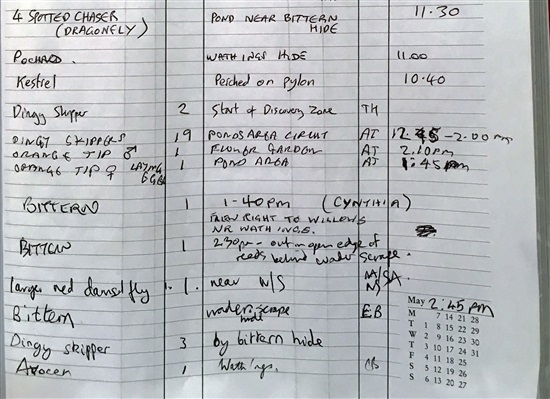 4 SPOTTED CHASER POND NEAR BITTERN 11.30
(DRAGONFLY) HIDE
POCHARD. WATH INGS HIDE 11.00
Kestrel Perched on pylon 10.40
Dingy Skipper 2 Start of Discovery Zone TH
DINGY SKIPPERS 19 PONDS AREA CIRCUIT AJ 12.45 - 2.00 pm
ORANGE TIP ♂ 1 FLOWER GARDEN AJ 2.10pm
ORANGE TIP ♀ LAYING 1 POND AREA AJ 1.45pm
EGGS
BITTERN 1 1-40pm (CYNTHIA)
FROM RIGHT TO WILLOWS
NR WATH INGS.
BITTERN 1 2.30pm - out in open edge of
reeds behind wader scrape.
large red damselfly 1. near W/S
Bittern wader scrape EB 2:45 pm
hide
Dingy skipper 3 by bittern hide
Avocen 1 Wath ings.
May
M 7 14 21 28
T 1 8 15 22 29
W 2 9 16 23 30
T 3 10 17 24 31
F 4 11 18 25
S 5 12 19 26
S 6 13 20 27